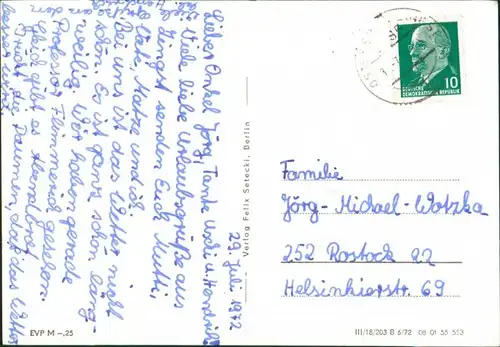 29. Juli 1972
Lieber Onkel Jörg, Tante Uschi u. Hendrik!
Viele liebe Urlaubsgrüße aus
Zingst senden Euch Mutti,
Kake, Matze und ich.
Bei uns ist das Wetter nicht
schön. Es ist ganz schön lang-
weilig. Wir haben gerade
Professor Flimmerich gesehen.
Gleich gibt es Abendbrot.
Drückt die Daumen, daß das Wetter
besser wird.
Familie
Jörg-Michael Wotzka
252 Rostock 22
Helsinkierstr. 69
10
DEUTSCHE
DEMOKRATISCHE REPUBLIK
Verlag Felix Setecki, Berlin
EVP M –,25
III/18/203 B 6/72 08 01 55 553